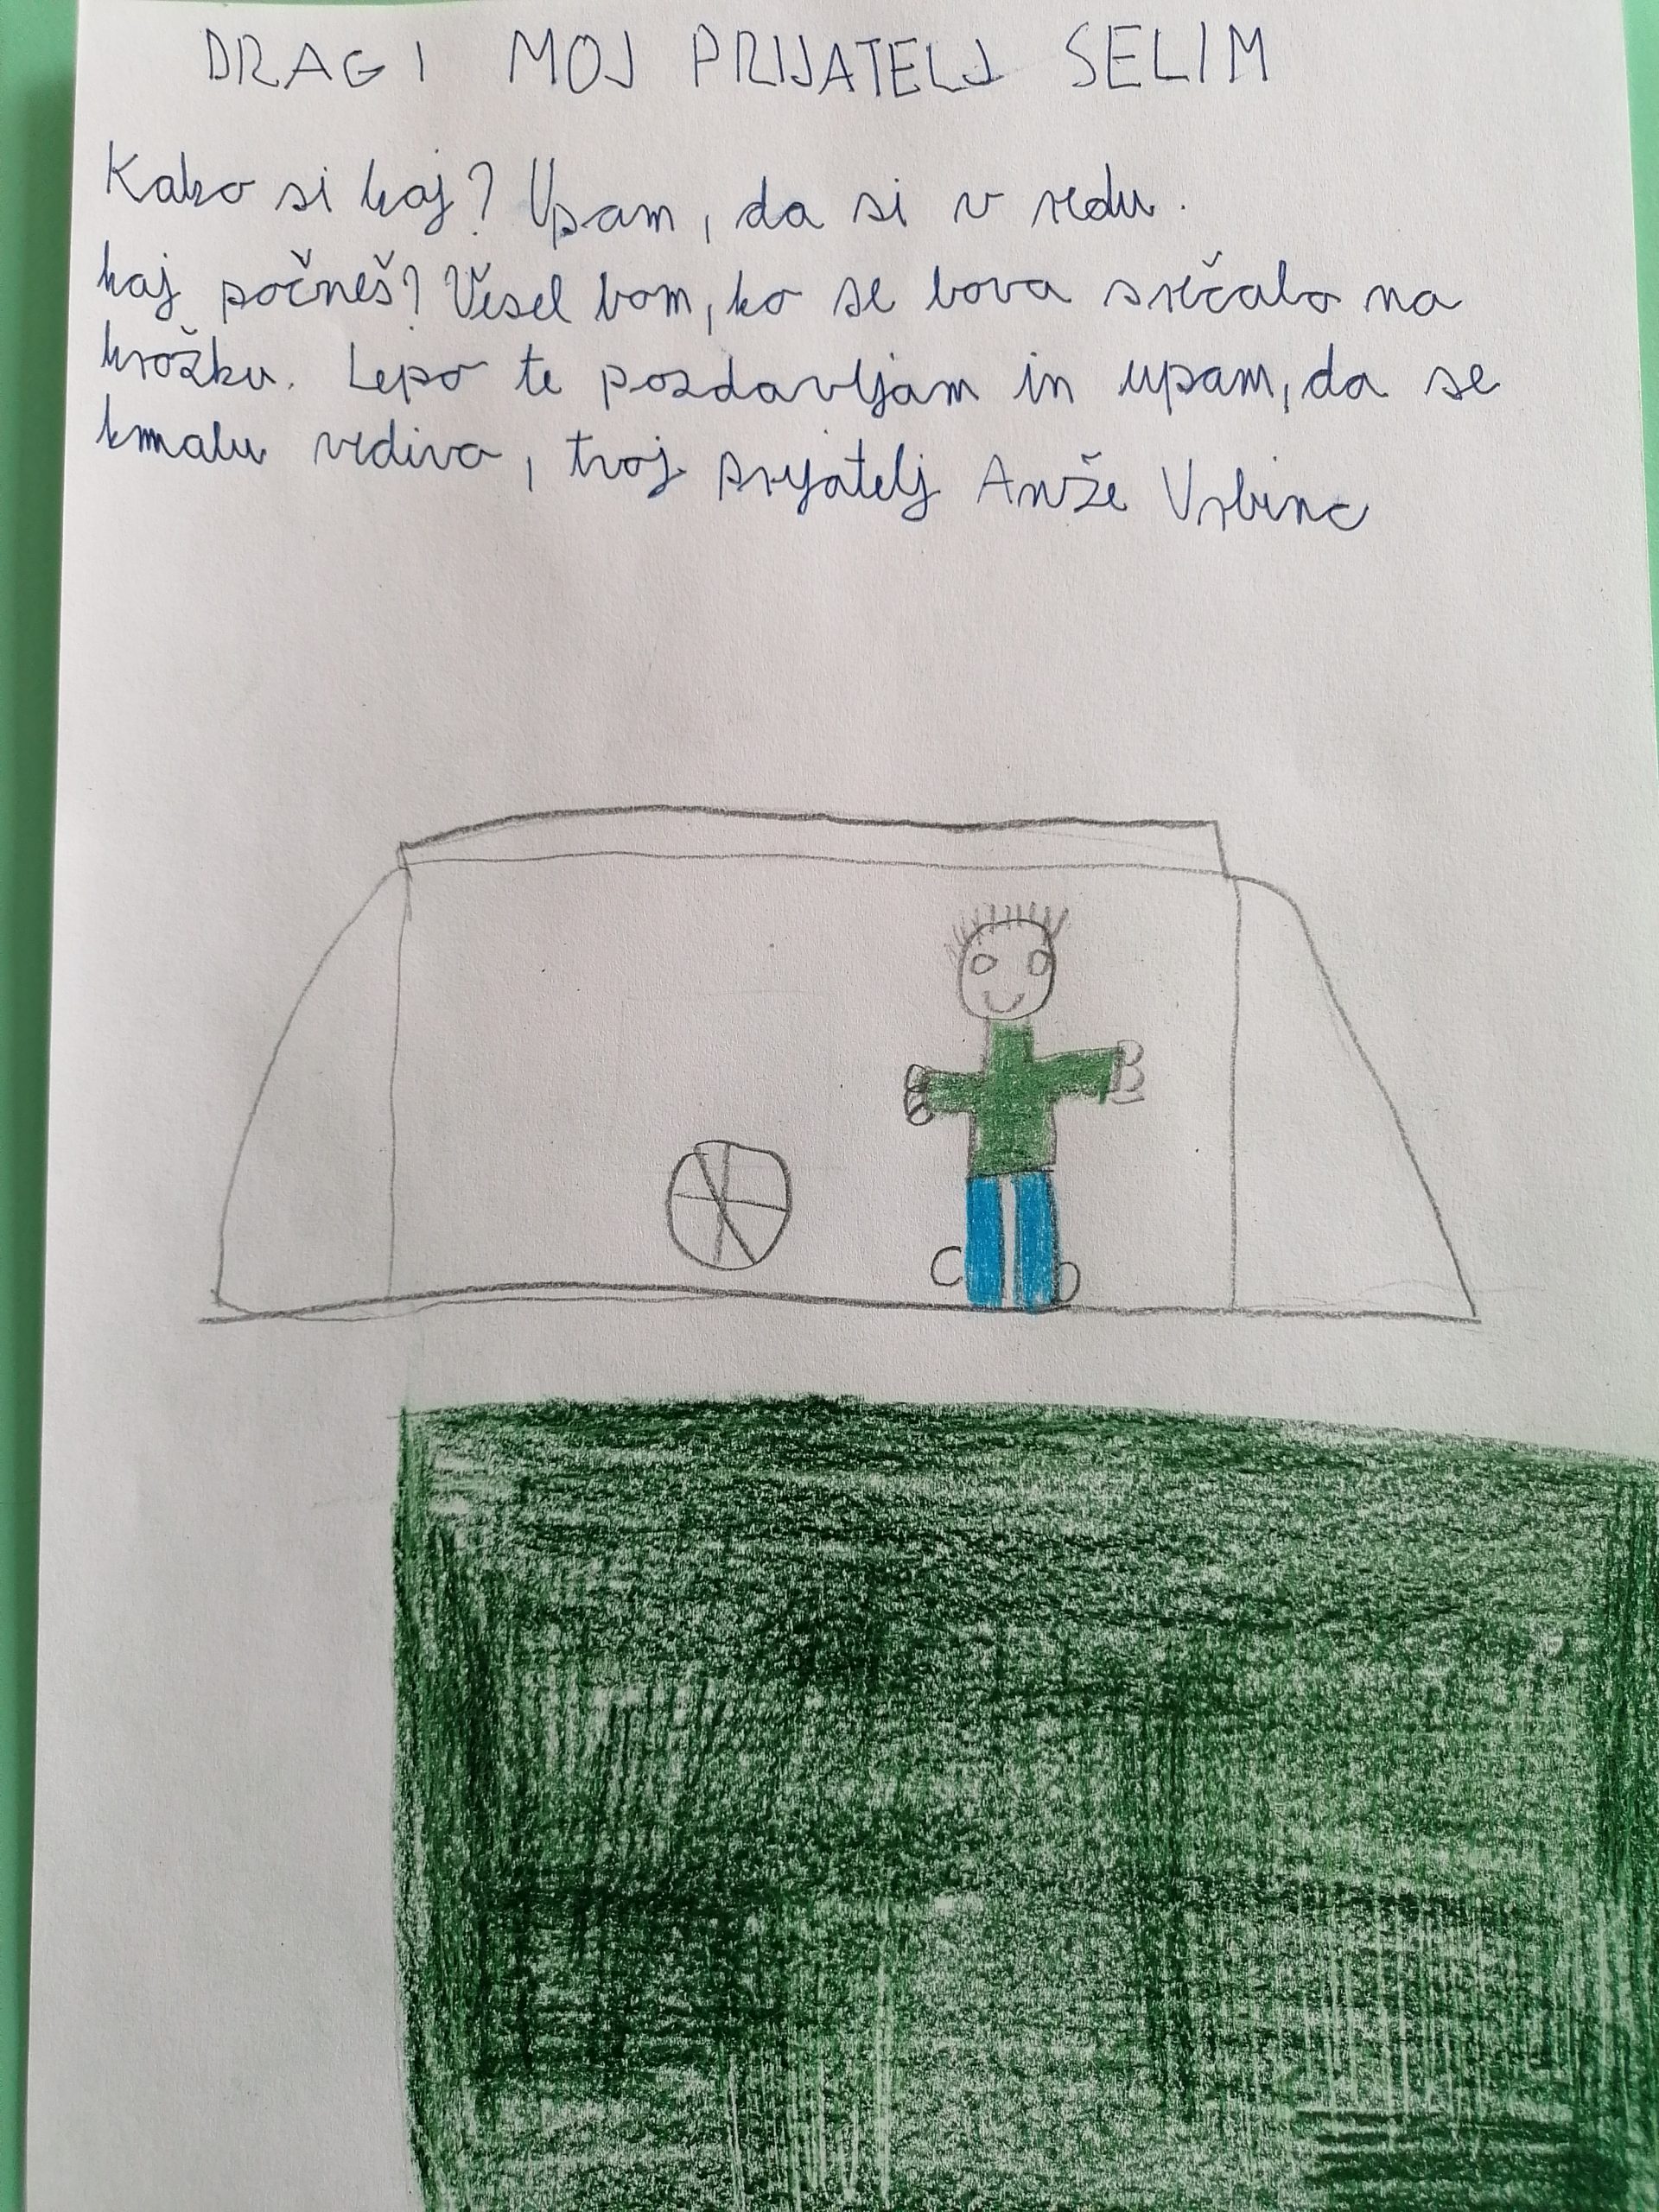 DRAGI MOJ PRIJATELJ SELIM
Kako si kaj? Upam, da si v redu.
kaj počneš? Vesel bom, ko se bova srečala na
krožku. Lepo te pozdavljam in upam, da se
kmalu vidiva, tvoj prijatelj Anže Vrbinc